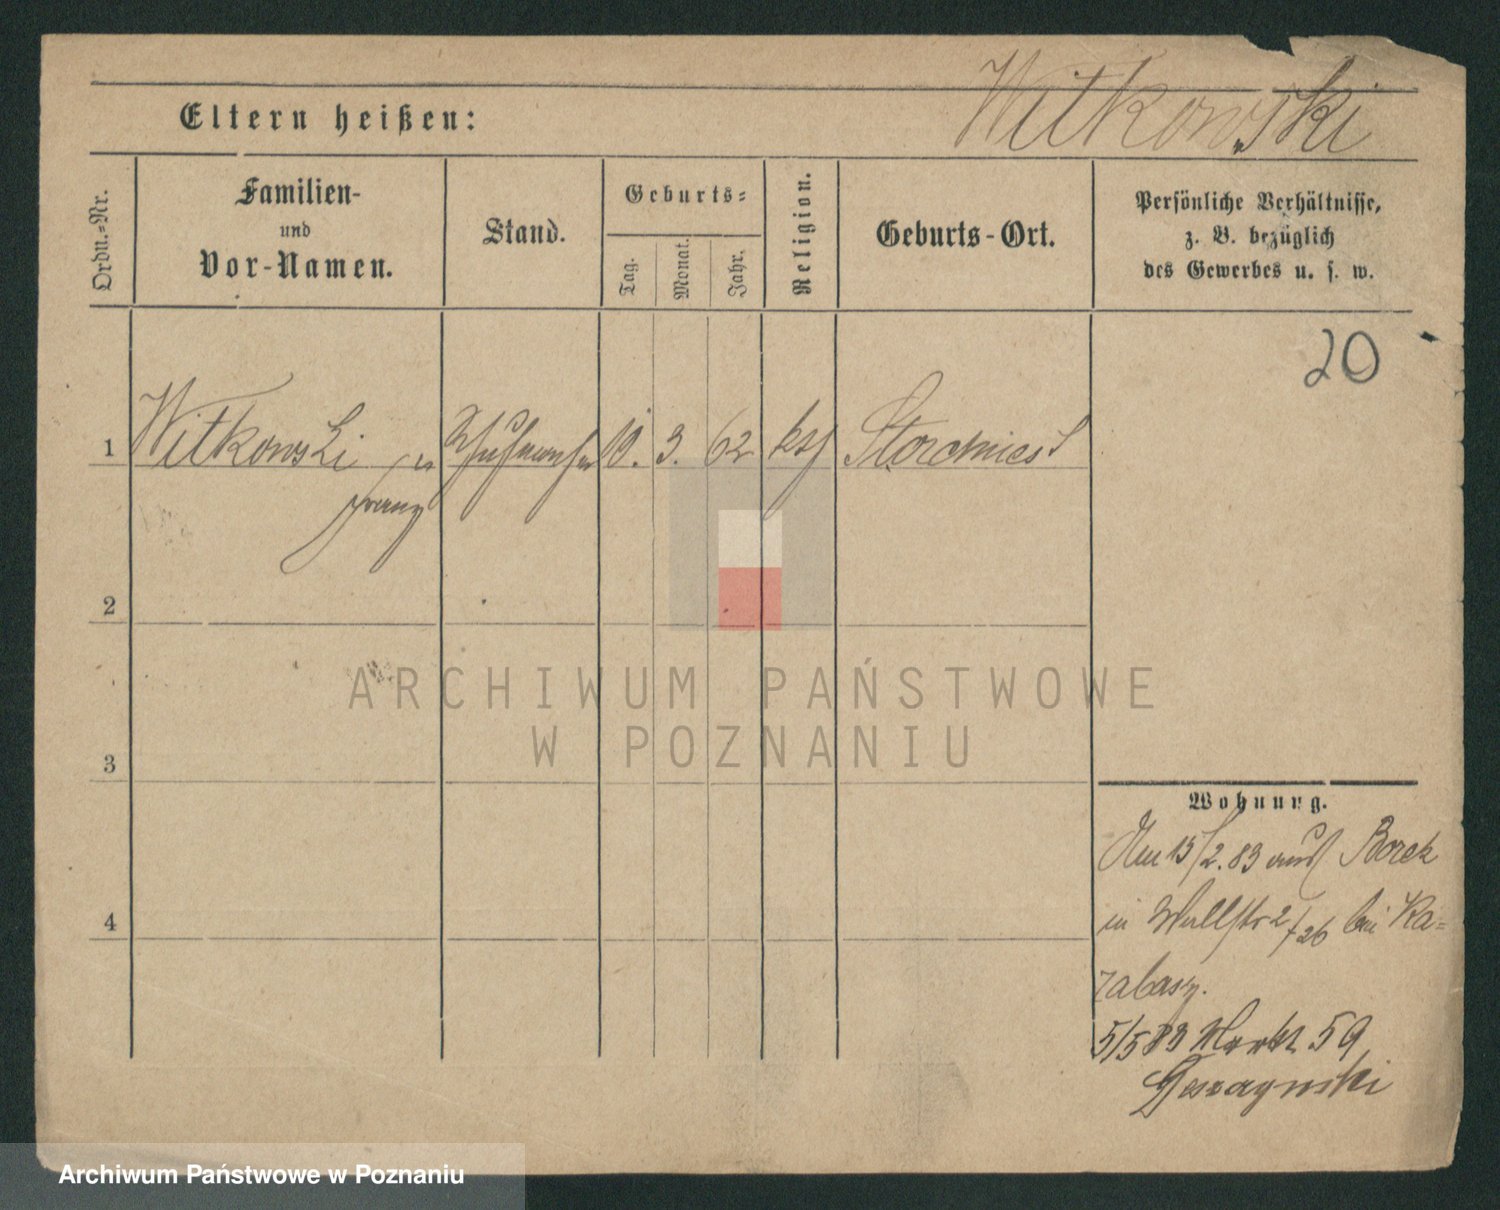 Witkowski
Eltern heißen:
Ordn.-Nr.
Familien-
und
Vor-Namen.
Stand.
Geburts-
Tag.
Monat.
Jahr.
Religion.
Geburts-Ort.
Persönliche Verhältnisse,
z. B. bezüglich
des Gewerbes u. s. w.
20
1 Witkowski Franz 10. 3. 62 kth Storchnest
2
3
4
ARCHIWUM PAŃSTWOWE
W POZNANIU
Wohnung.
Am 15/2.83 aus Borek
in Wallstr 2/26 bei Ka=
zabasz.
5/5 83 Markt 59
Archiwum Państwowe w Poznaniu